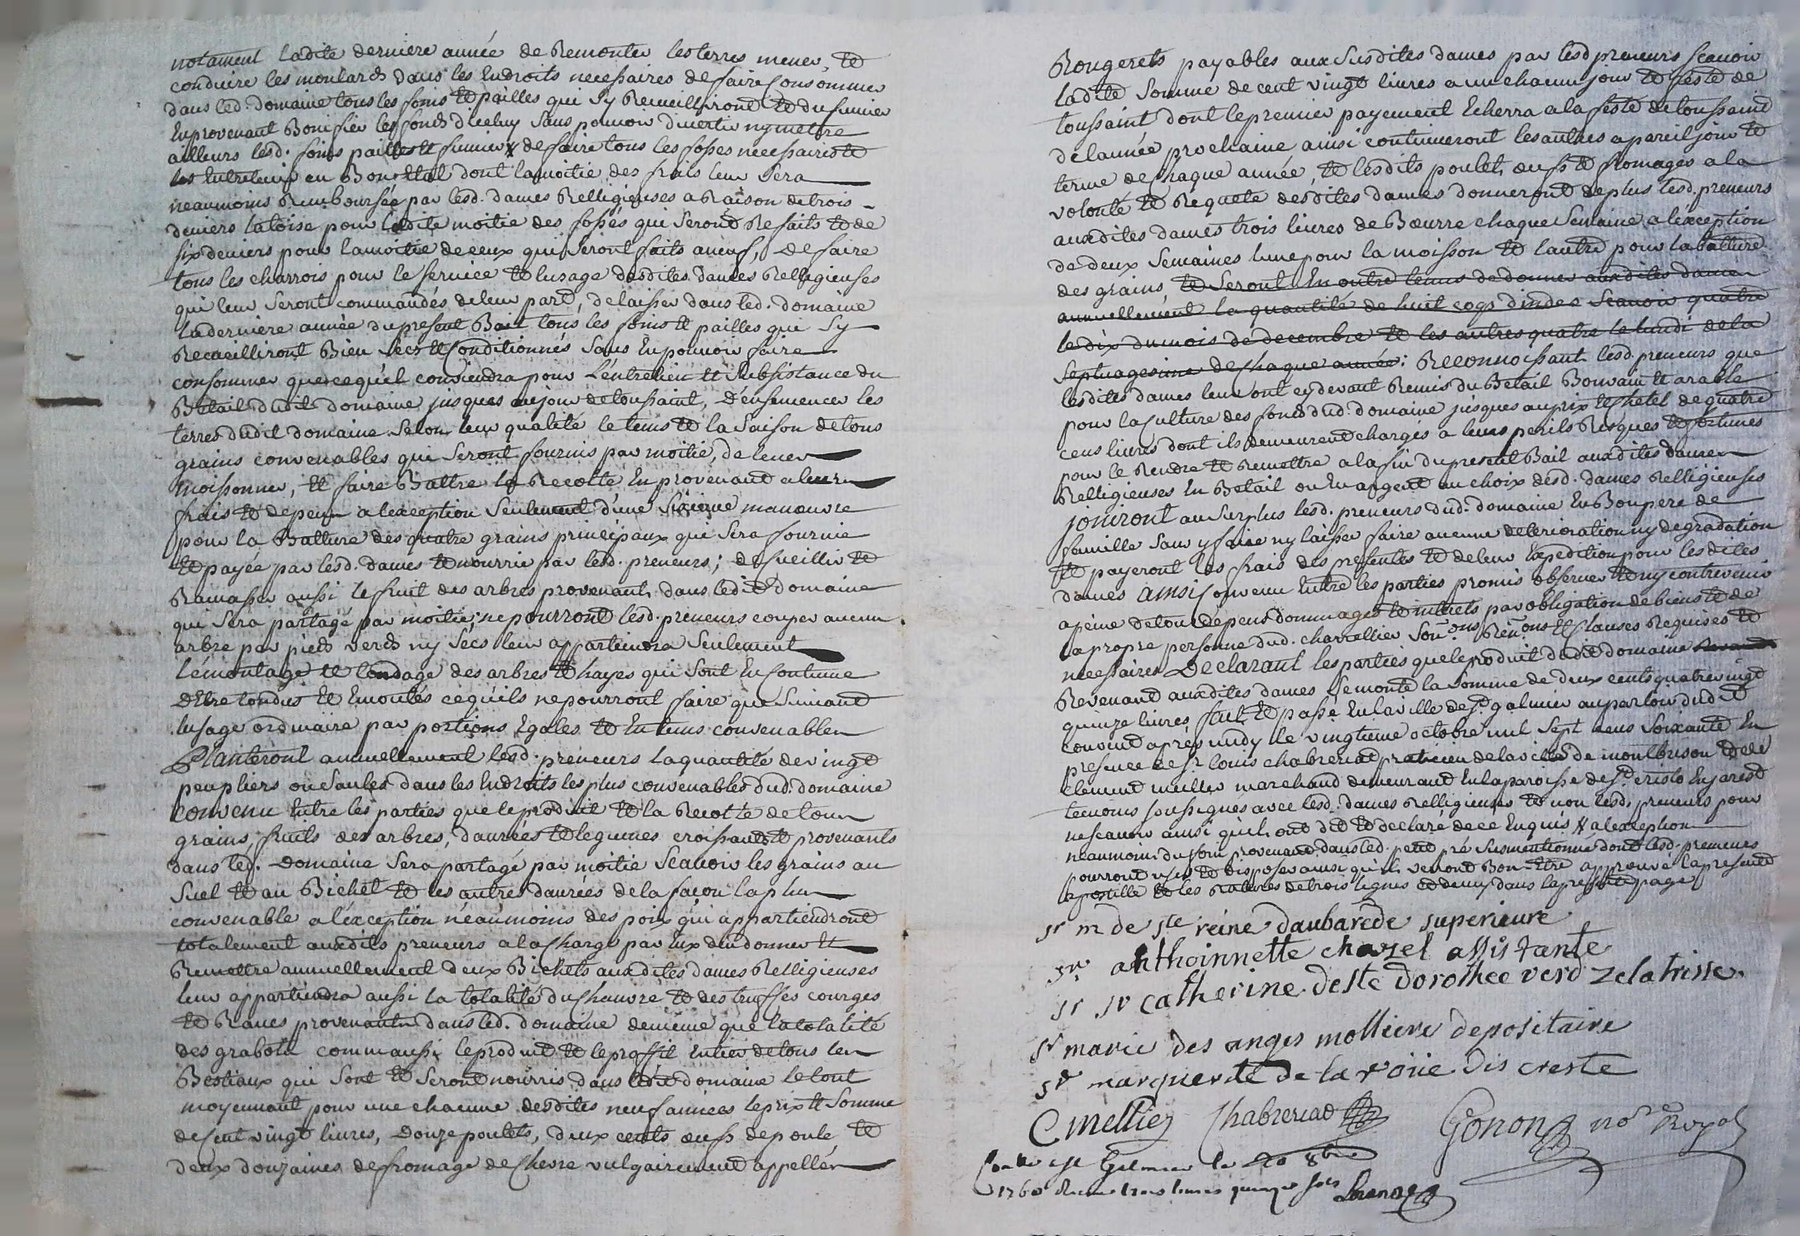 notament ladite derniere année de Remonter les terres mener, et
conduire les moulards dans les Endroits necessaires de faire Consommer
dans led. domaine tous les foins et pailles qui sy Recueilliront et du fumier
En provenant Bonifier les fonds d'iceluy sans pouvoir divertir ny mettre
ailleurs lesd. foins pailles et fumier de faire tous les fossés necessaires et
les Entretenir en Bon Etat dont la moitié des frais leur sera
neaumoins Remboursée par lesd. dames Relligieuses a Raison de trois
deniers la toise pour ladite moitié des fossés qui seront Refaits et de
six deniers pour la moitié de ceux qui seront faits a neuf, de faire
tous les charrois pour le service et lusage desdites dames Relligieuses
qui leur seront commandés de leur part, de laisser dans led. domaine
la derniere année du present Bail tous les foins et pailles qui sy
Recueilliront Bien secs et Conditionnés sans En pouvoir faire
consommer que ce qu'il conviendra pour L'entretien et subsistance du
Betail dudit domaine jusques au jour de toussaint, d'ensemencer les
terres dudit domaine selon leur qualité le tems et la saison de tous
grains convenables qui seront fournis par moitié, de lever
moissonner, et faire Battre la Recolte En provenant a leurs
frais et depens a lexception seulement d'une manoeuvre
pour la Batture des quatre grains principaux qui sera fournie
et payée par lesd. dames et nourrie par lesd. preneurs; de Cueillir et
Ramasser aussi le fruit des arbres provenant dans ledit domaine
qui sera partagé par moitié; ne pourront lesd. preneurs couper aucun
arbre par pied verds ny secs leur appartiendra seulement
L'émontage et tondage des arbres et hayes qui sont En Coutume
d'Etre tondus et Emontés ce qu'ils ne pourront faire que suivant
lusage ordinaire par portions Egales et En tems convenables
Planteront annuellement lesd. preneurs la quantité de vingt
peupliers ou saules dans les Endroits les plus convenables dud. domaine
Convenu Entre les parties que le produit et la Recolte de tous
grains, fruits des arbres, danrées et legumes croissants et provenants
dans led. domaine sera partagé par moitié scavoir les grains au
suel et au Bichet et les autres danrées de la façon la plus
convenable a lexception néaumoins des poix qui appartiendront
totalement auxdits preneurs a la Charge par Eux d'en donner et
Remettre annuellement deux Bichets auxdites dames Relligieuses
leur appartiendra aussi la totalité du Chanvre et des truffes courges
et Raves provenants dans led. domaine de même que la totalité
des grabots comm'aussi le produit et le proffit Entier de tous les
Bestiaux qui sont et seront nourris dans ledit domaine le tout
moyennant pour une chacune desdites neuf années le prix et somme
de Cent vingt livres, douze poulets, deux cents oeufs de poule et
deux douzaines de fromage de Chevre vulgairement appellés
Rougerets payables aux susdites dames par lesd. preneurs scavoir
ladite somme de cent vingt livres a un chacun jour et feste de
toussaint dont le premier payement Echerra a la feste de toussaint
de lannée prochaine ainsi continueront les autres a pareil jour et
terme de Chaque année, et lesdits poulets oeufs et fromages a la
volonté et Requete desdites dames donneront de plus lesd. preneurs
auxdites dames trois livres de Boeurre chaque semaine a lexception
de deux semaines lune pour la moisson et lautre pour la batture
des grains et seront En outre tenus de donner auxdites dames
annuellement la quantité de huit coqs d'indes scavoir quatre
le dix du mois de decembre et les autres quatre le lundi de la
septuagesime de Chaque année; Reconnoissant lesd. preneurs que
lesdites dames leur ont cy devant Remis du Betail Bouvain et arable
pour la Culture des fonds dud. domaine jusques au prix et Chetel de quatre
cens livres dont ils demeurent chargés a leurs perils Risques et fortunes
pour le Rendre et Remettre a la fin du present Bail auxdites dames
Relligieuses En Betail ou En argent au choix desd. dames Relligieuses
jouiront au surplus lesd. preneurs dud. domaine En Bon pere de
famille sans y faire ny laisser faire aucune deterioration ny degradation
et payeront les frais des presentes et de leur Expedition pour lesdites
dames Ainsi Convenu Entre les parties promis observer et ny contrevenir
a peine de tous depens dommages et interets par obligation de biens et de
la propre personne dud. chavellier Son.ons Ren.ons et Clauses Requises et
necessaires Declarant les parties que le produit dudit domaine
Revenant auxdites dames se monte la somme de deux cents quatre vingt
quinze livres fait et passé En la ville de St galmier au parloir dudit
couvent après midy le vingtieme octobre mil sept cens soixante En
presence de sr louis chabreriat praticien de la ville de montbrison et de
Clément meillier marchand demeurant En la paroisse de St cristo En jarest
temoins soussignés avec lesd. dames Relligieuses et non lesd. preneurs pour
ne scavoir ainsi qu'ils ont dit et declaré de ce Enquis X a lexception
neaumoins du foin provenant dans led. petit pré susmentionné dont lesd. preneurs
pourront user et disposer ainsi qu'ils verront Bon Etre approuvé la presente
apostille et les Ratures de trois lignes et demy dans la presente page
sr m de ste reine daubarede superieure
sr anthoinnette chazel assistante
sr sr catherine de ste dorothee verd zelatrisse
sr marie des anges molliere depositaire
sr marguerite de la roüe discrette
C meillier Chabreriat Gonon no.re Royal
Con.lé a St Galmier le 20 8bre
1760 Recu trois livres quinze sols